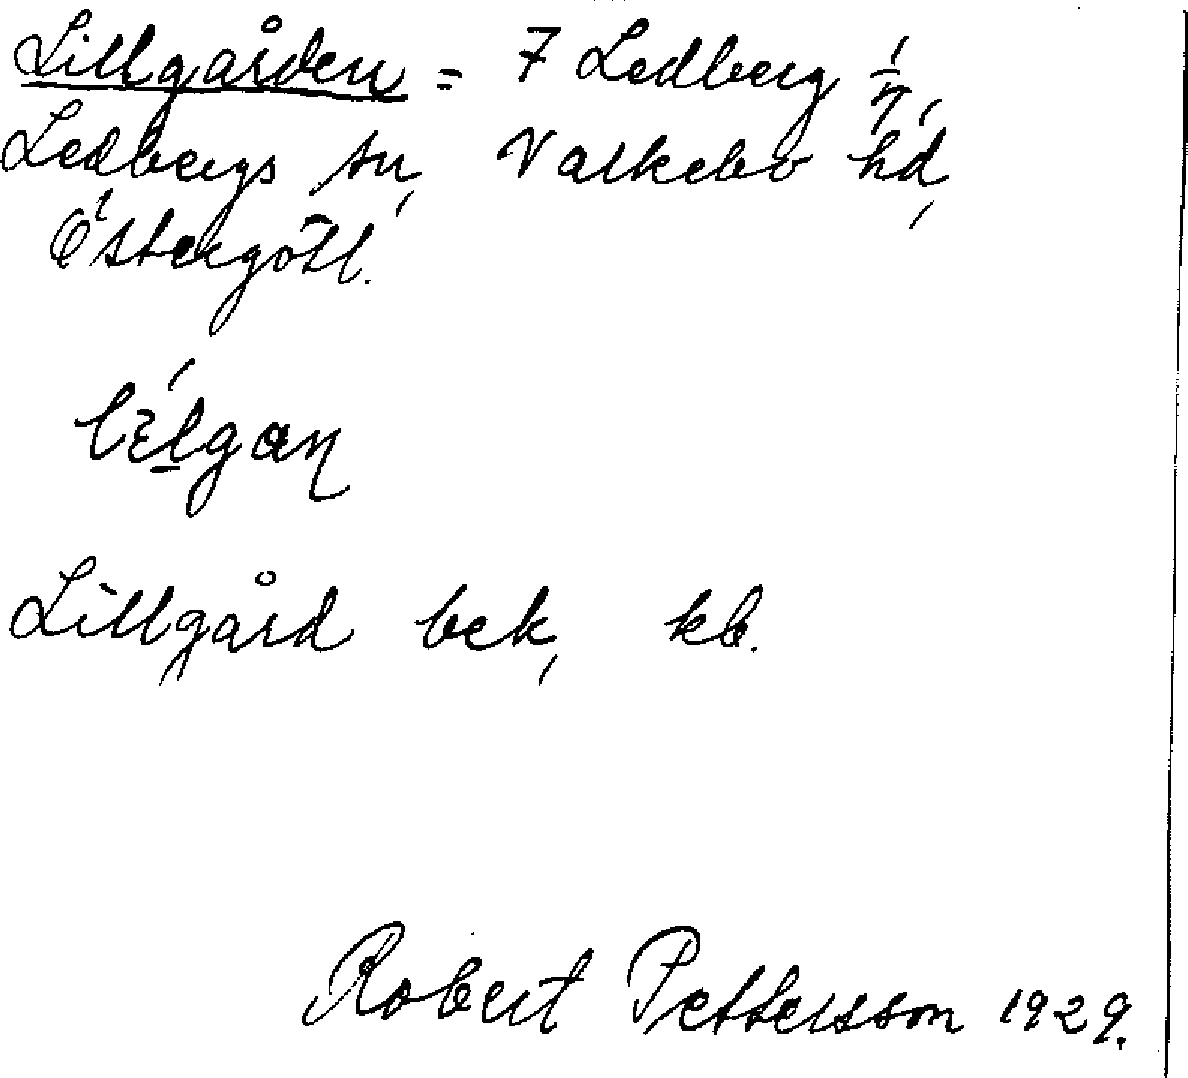 Lillgården = 7 Ledberg 1/7,
Ledbergs sn, Valkebo hd,
Östergötl.
Lillgård bek, kb.
Robert Pettersson 1929.